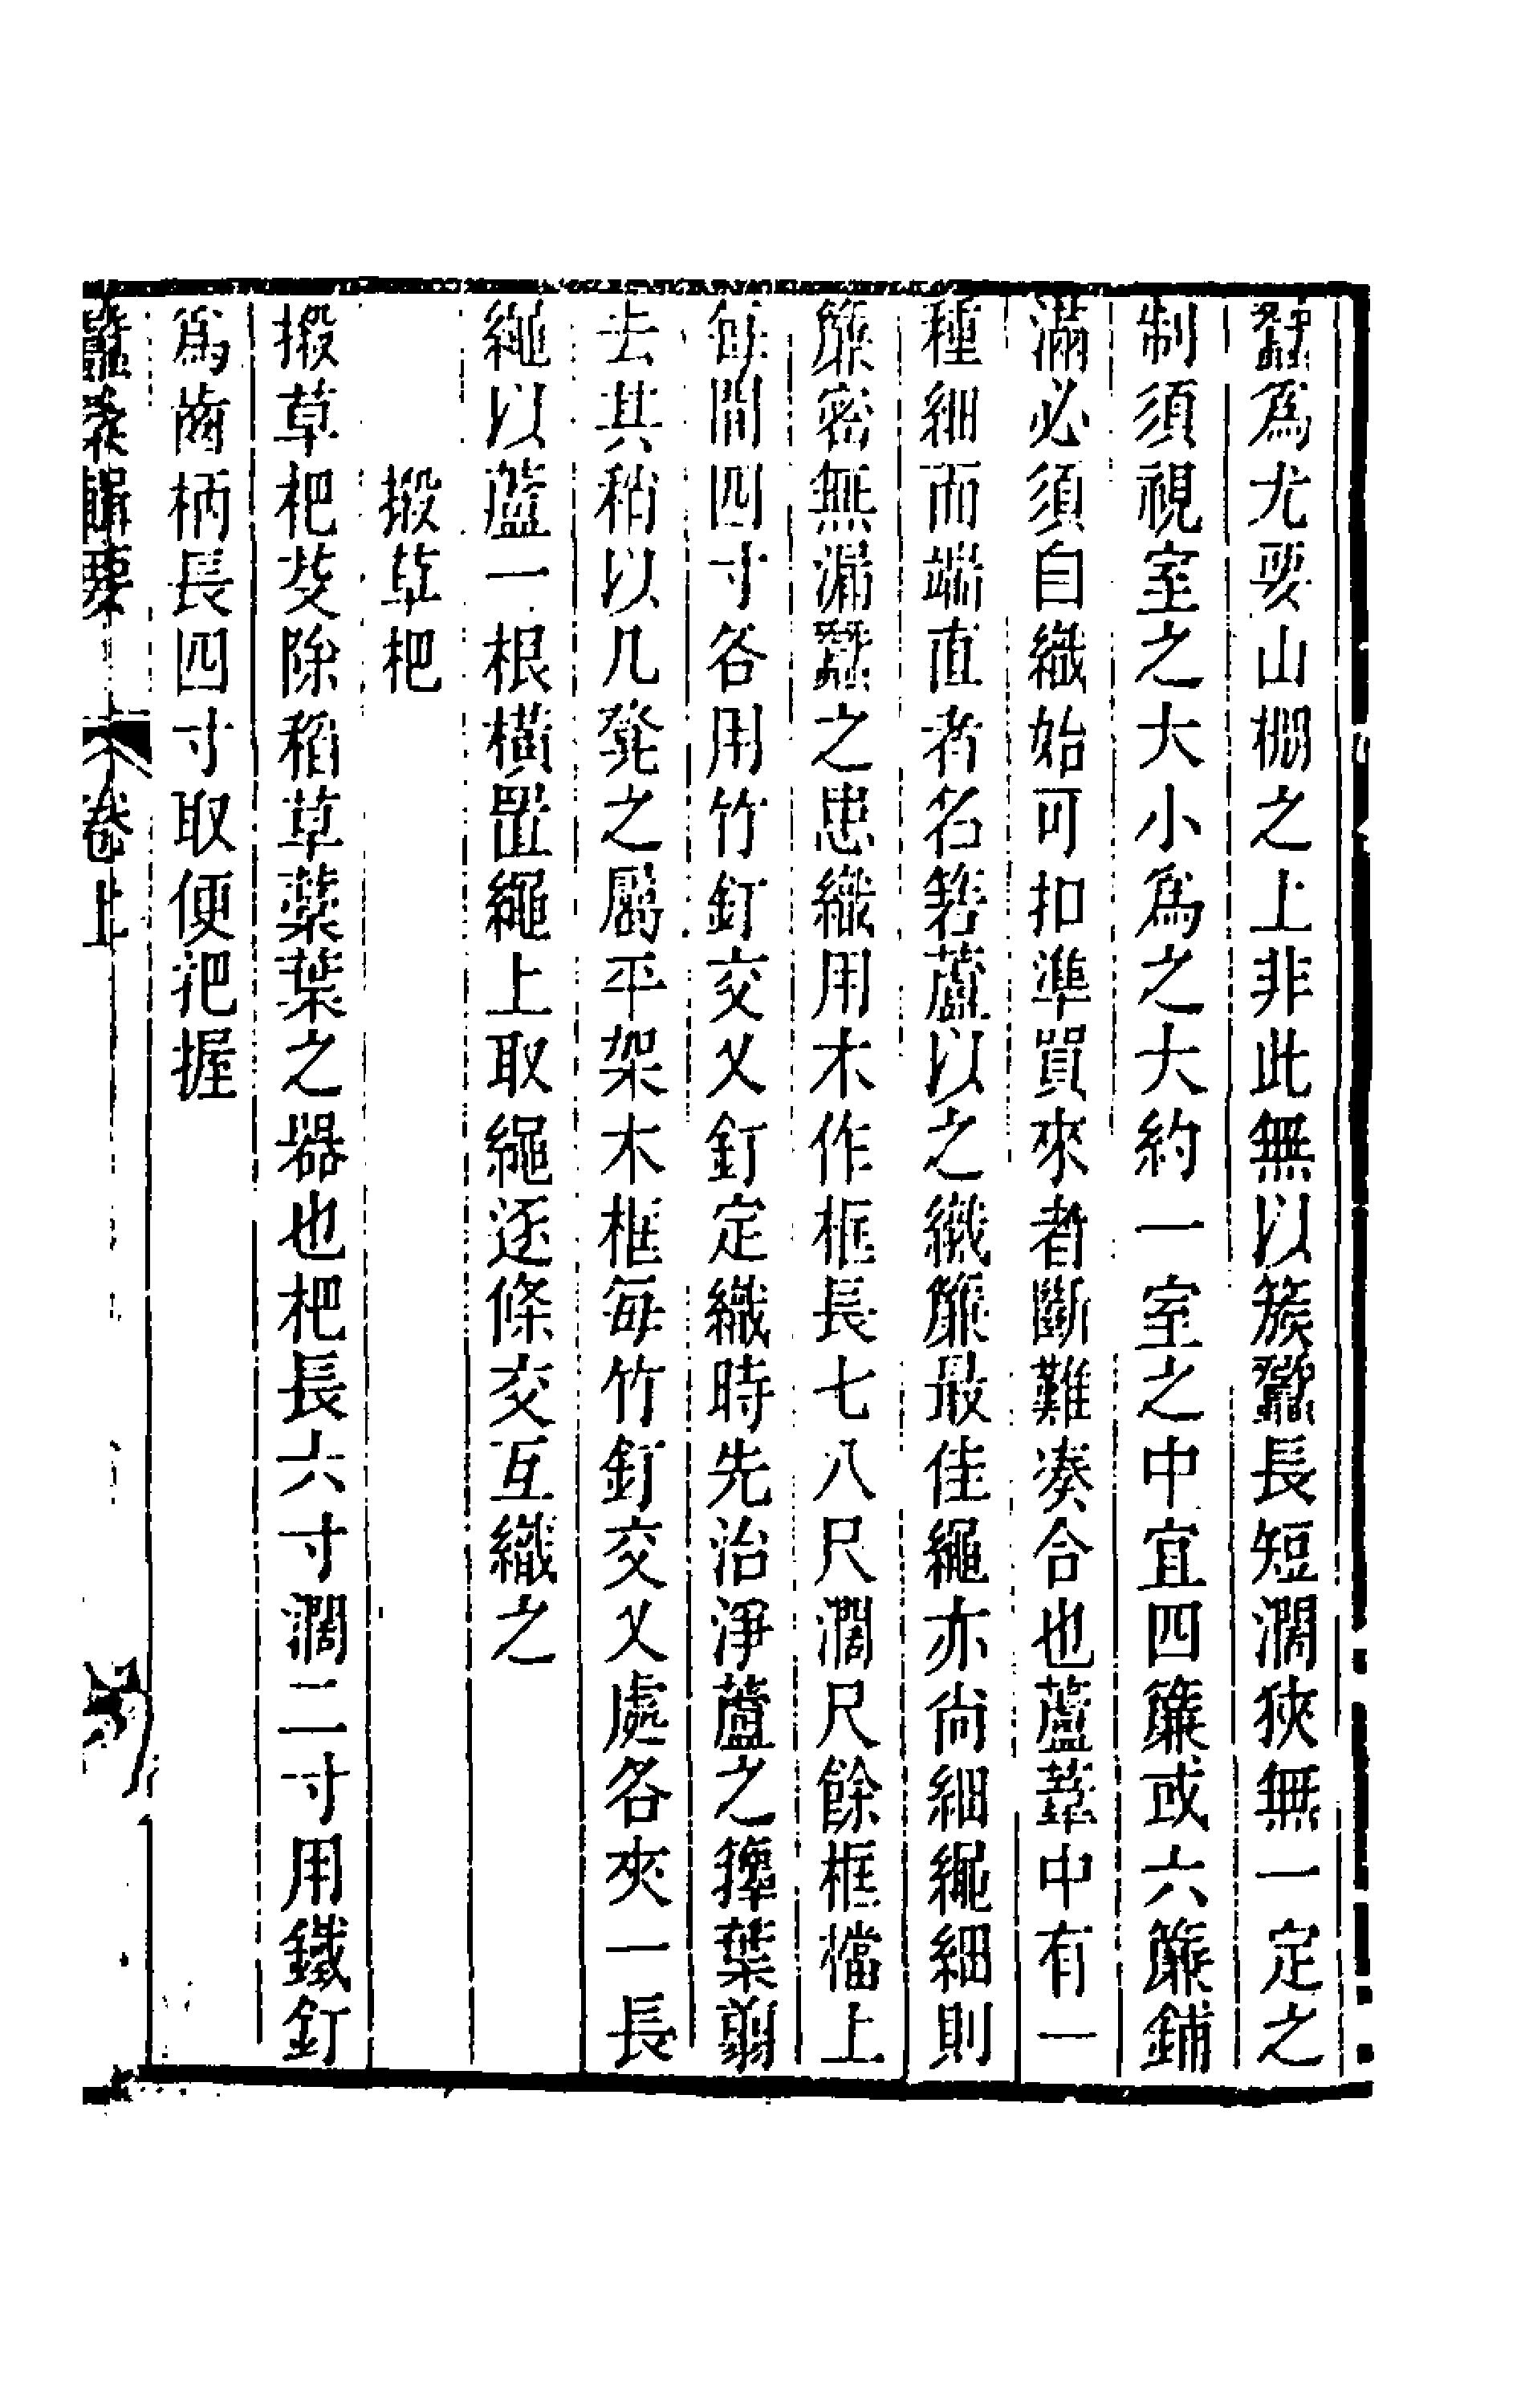 蠶為尤要山棚之上非此無以簇蠶長短濶狹無一定之
制須視室之大小為之大約一室之中宜四簾或六簾鋪
滿必須自織始可扣準買來者斷難凑合也蘆葦中有一
種細而端直者名箬蘆以之織簾最佳繩亦尚細繩細則
簾密無漏蠶之患織用木作框長七八尺濶尺餘框檔上
每間四寸各用竹釘交乂釘定織時先治淨蘆之籜葉翦
去其稍以几凳之屬平架木框每竹釘交乂處各夾一長
繩以蘆一根橫置繩上取繩逐條交互織之
搬草杷
搬草杷芟除稻草藁葉之器也杷長六寸濶二寸用鐵釘
為齒柄長四寸取便把握
蠶桑輯要 卷上